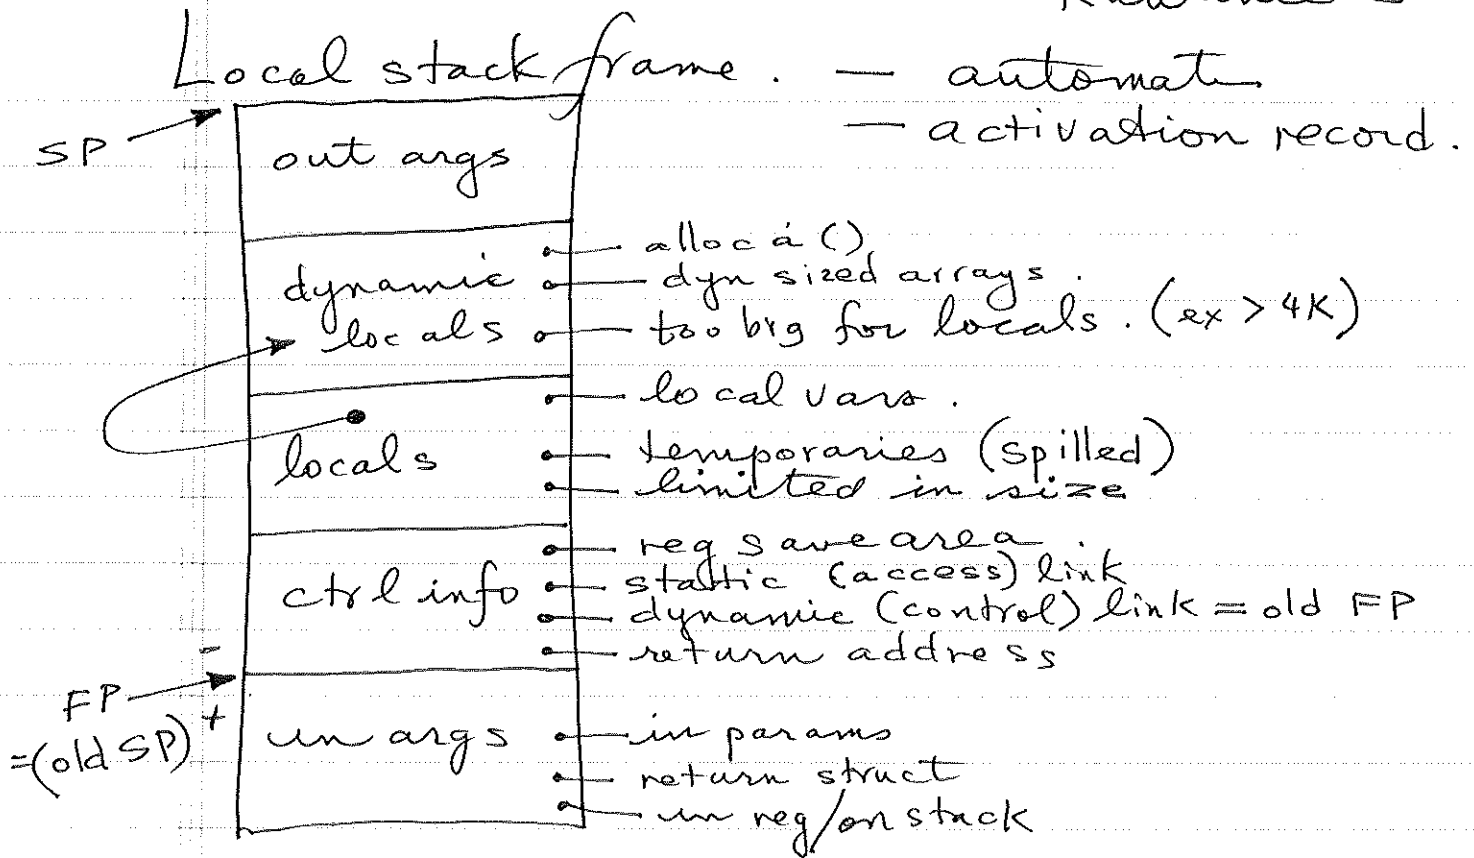 Local stack frame. — automat
— activation record.
SP
out args
dynamic locals
alloca()
dyn sized arrays.
too big for locals. (ex > 4K)
locals
local vars.
temporaries (spilled)
limited in size
ctrl info
reg save area.
static (access) link
dynamic (control) link = old FP
return address
-
FP
=(old SP)
+
in args
in params
return struct
in reg/on stack